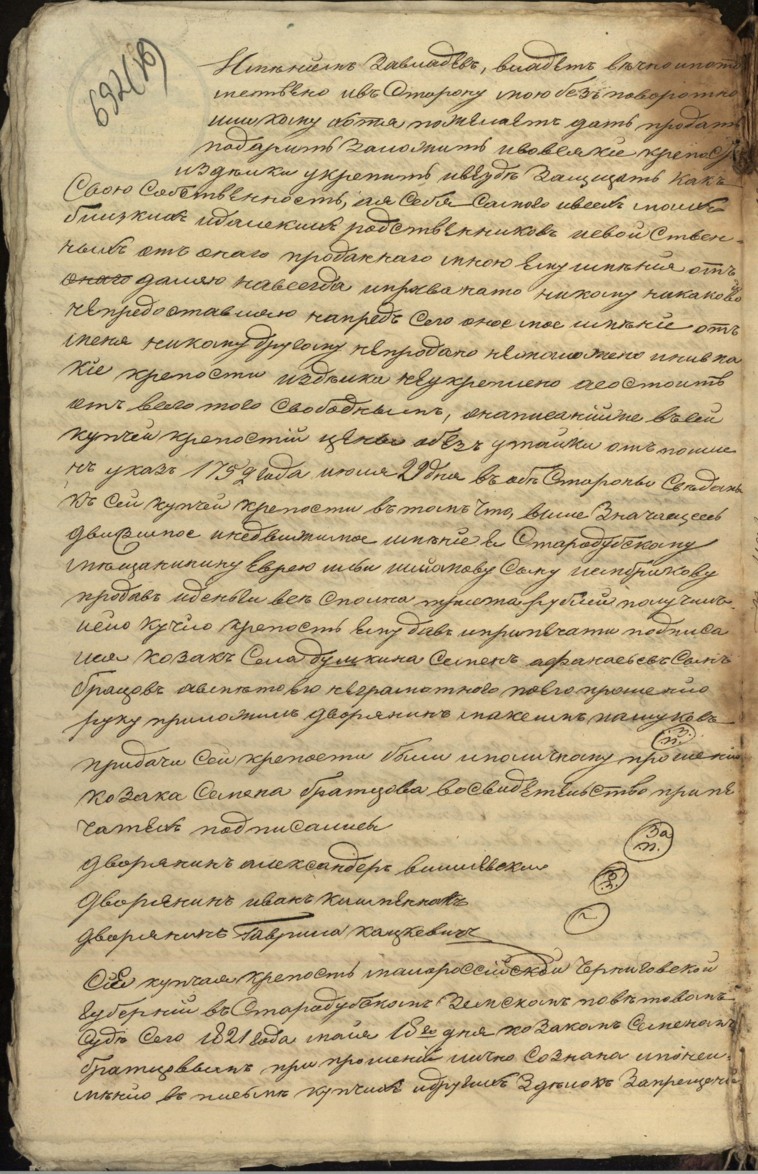 692(10)
Имѣніемъ завладѣвъ, владѣть вѣчно ипото
мственно ивъ Сторону мою безъповоротно
иникому хотя пожелаетъ дать продать
подарить Заложить ивовсякіе крепост
издѣлки укрепить ивездѣ Защищать какъ
Свою Собственность, ая Себя Самого ивсехъ моихъ
близкихъ идалекихъ родственниковъ исвойствен-
ныхъ отъ онаго проданнаго мною ему имѣнія отъ
онаго даляю навсегда иправа нато никому никаковой
непредоставляю напредъ Сего оное мое имѣніе отъ
меня никому другому непродано незаложено инивка
кіе крепости издѣлки неукреплено аостоитъ
отъ всего того Свободнымъ, онаписаніи же въсей
купчей крепостіи цѣны обезъ утайки отъ пошле
нъ указъ 1752 года июля 29 дня въ обѣ Стороны Свѣданъ
Къ Сей купчей крепости въ томъ что, выше Значащееся
движимое инедвижимое имѣніе Я Стародубскому
мѣщанину Еврею
продавъ иденьги все Сполна рублей получилъ
исію купчую крепость ему давъ иприпечати подписа
лся козакъ Села Семенъ афанасьевъ Сынъ
братцовъ авместо его неграмотного поего прошению
руку приложилъ дворянинъ максимъ пашуковъ
п. п.
придачи Сей крепости были иполичному прошенію
козака Семена братцова восвидѣтельство припе
чатехъ подписались
дворянинъ александеръ вишневски За п.
дворянинъ иванъ
дворянинъ Гаврила кацкевичъ
Сія купчая крепость малороссійской Черниговской
Губерніи въ Стародубскомъ Земскомъ повѣтовомъ
Судѣ Сего 1821 года мая 18го дня козакомъ Семеномъ
братцовымъ при прошеніи лично Сознана ипонеи-
мѣнію въ писмѣ купчихъ идругихъ Здѣлокъ Запрещенія